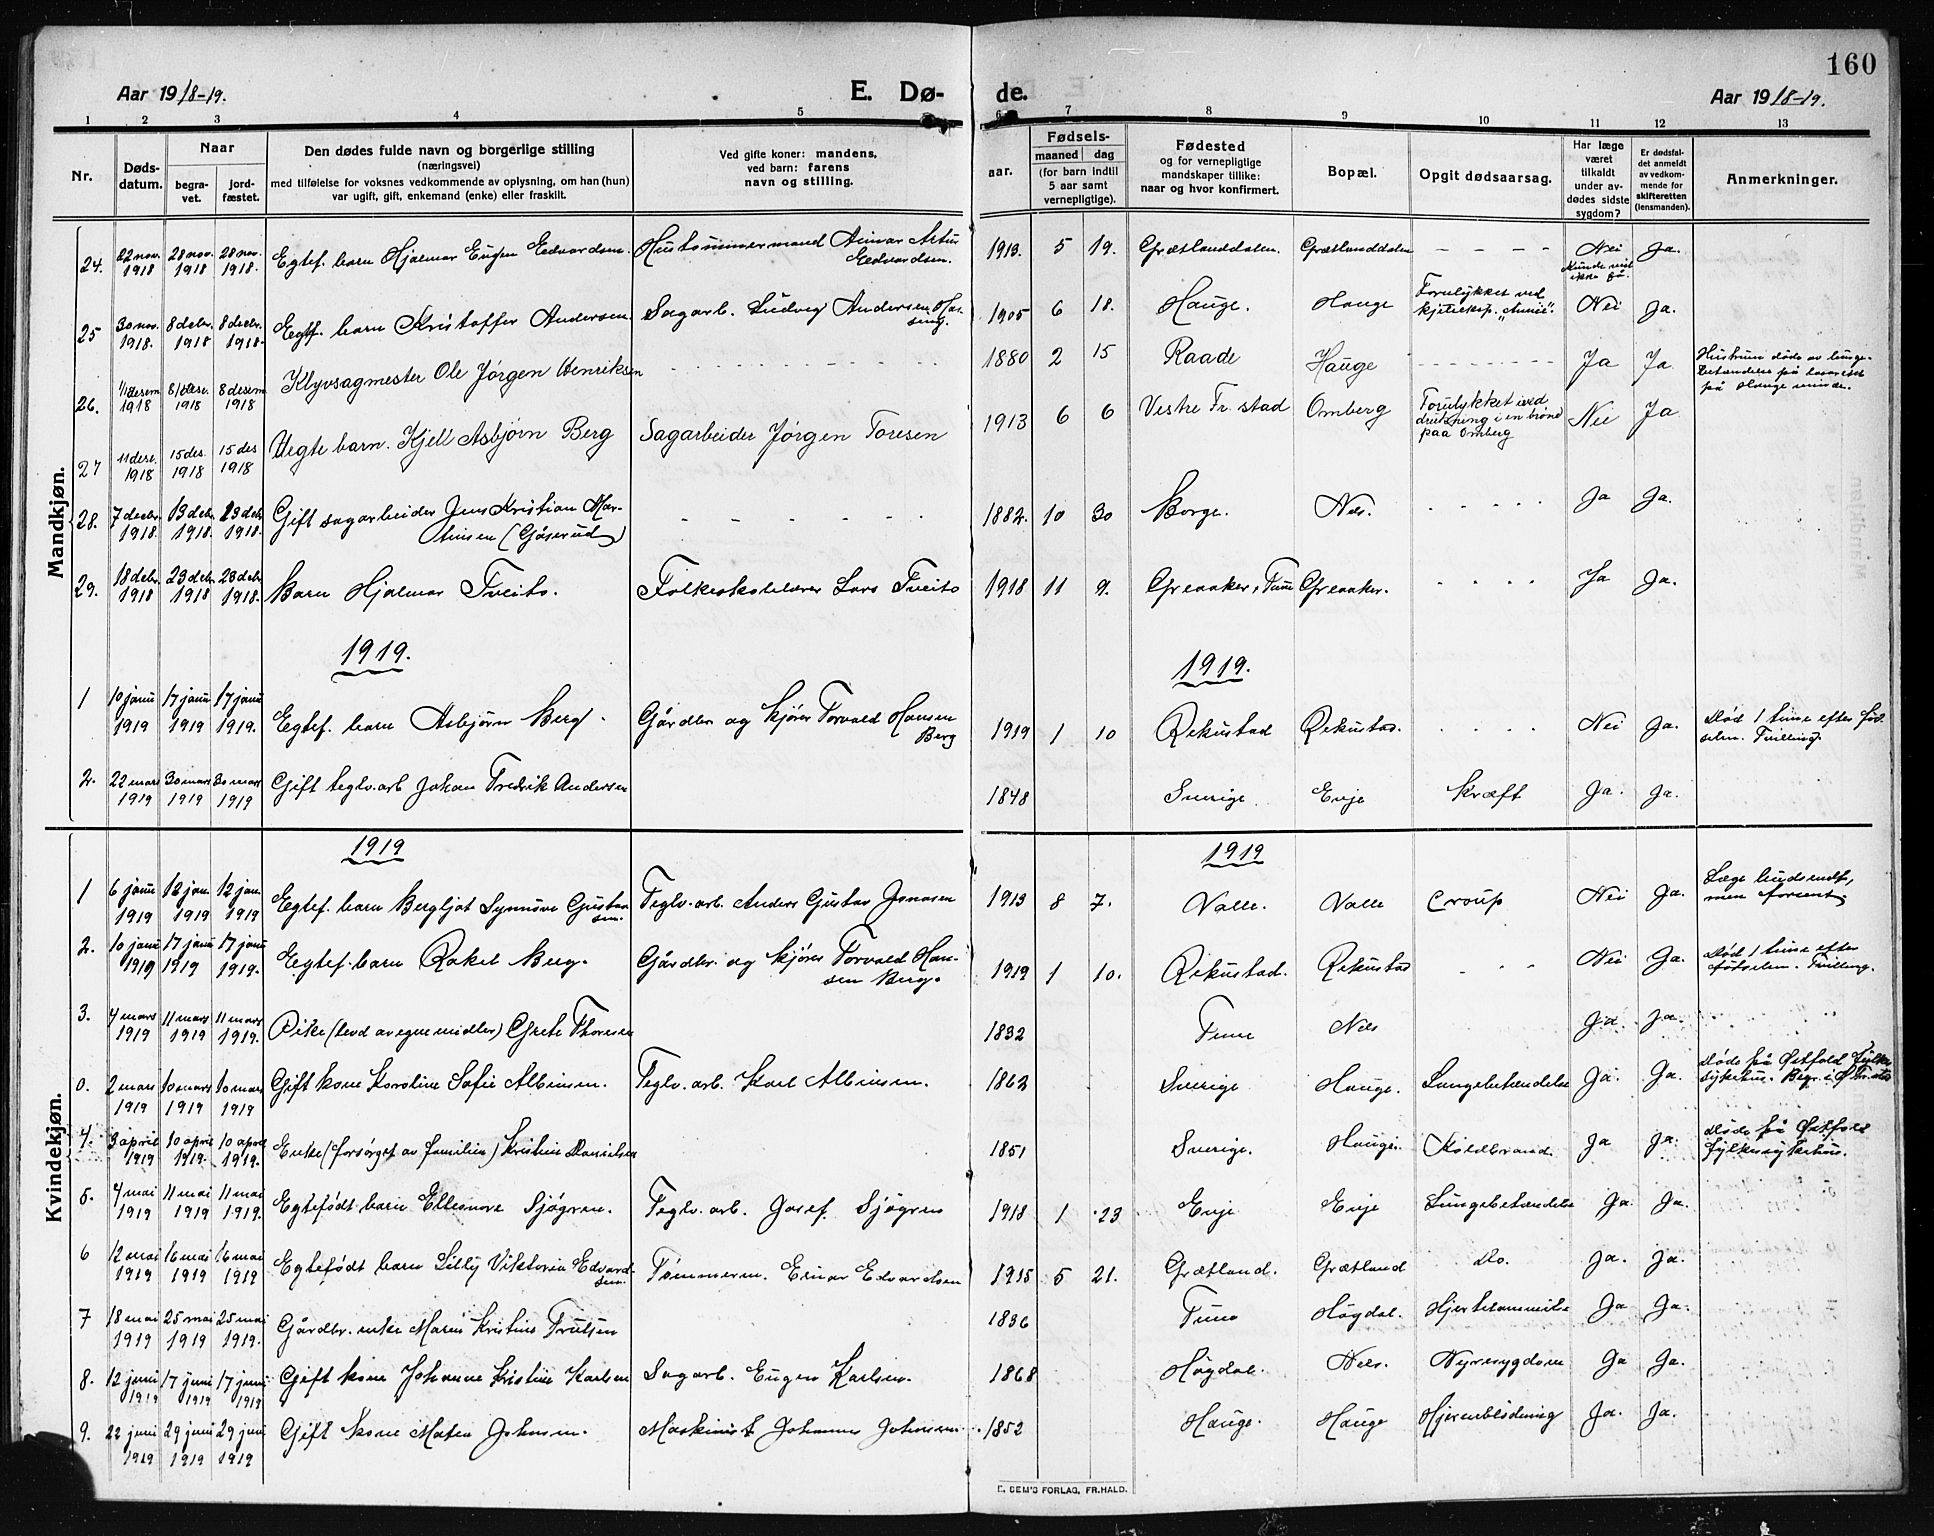 160
Aar 1918-19.
E. Dø-
de.
Aar 1918-19.
1 2 3 4 5 6 7 8 9 10 11 12 13
Nr.
Døds-
datum.
Naar
begra-
vet.
jord-
fæstet.
Den dødes fulde navn og borgerlige stilling
(næringsvei)
med tilføielse for voksnes vedkommende av oplysning, om han (hun)
var ugift, gift, enkemand (enke) eller fraskilt.
Ved gifte koner: mandens,
ved barn: farens
navn og stilling.
aar.
Fødsels-
maaned dag
(for barn indtil
5 aar samt
vernepligtige).
Fødested
og for vernepligtige
mandskaper tillike:
naar og hvor konfirmert.
Bopæl.
Opgit dødsaarsag.
Har læge
været
tilkaldt
under av-
dødes sidste
sygdom?
Er dødsfal-
det anmeldt
av vedkom-
mende for
skifteretten
(lensmanden).
Anmerkninger.
Mandkjøn.
24. 22 nov. 1918 28 nov. 1918 28 nov. 1918. Egtef. barn Hjalmar Eugen Edvardsen. Hustømmermand Artur Edvardsen. 1913. 5 19. Grætlanddalen. Grætlanddalen - - - - Nei Ja.
25 30 nov. 1918. 8 decbr. 1918 8 decbr. 1918. Egtf. barn Kristoffer Andersen. Sagarb. Ludvig Andersen 1905 6 18. Hauge. Hauge Forulykket ved Nei Ja.
26. 1/1 desem 1918 8/desc. 1918 8 desem 1918 Klyvsagmester Ole Jørgen Henriksen - - - - 1880 2 15 Raade Hauge - - - - Ja Ja Hustrun døde av lunge-
betændelse på
27 11 dese. 1918 15 des. 1918 15 des 1918 Uegte barn. Kjell Asbjørn Berg Sagarbeider Jørgen Toresen 1913 6 6 Vestre Fr. stad Omberg Forulykket ved
drukning i en brønd
paa Omberg Nei Ja
28. 7 decbr. 1918. 13 debr. 1918. 13 debr. 1918. Gift sagarbeider Jens Kristian Mar-
tinsen (Gåserud) - - - - 1882. 10 30 Borge. Nes. - - - - Ja Ja.
29. 18 debr. 1918 23 debr. 1918 23 debr. 1918. Barn Hjalmar Tveito. Folkeskolelærer Lars Tveito 1918 11 9. Greaaker, Tune Greaaker. - - - - Ja Ja.
1919. 1919.
1 10 janu 1919 17 janu 1919 17 janu 1919. Egtef. barn Asbjørn Berg. Gårdbr og kjører Torvald Hansen
Berg 1919 1 10 Rekustad Rekustad. - - - - Nei Ja. Død 1 time efter fød-
selen. Tvilling.
2. 22 mars 1919 30 mars 1919 30 mars 1919 Gift teglv.arb Johan Fredrik Andersen 1848 Sverige Enje Kræft Ja. Ja.
Kvindekjøn.
1919 1919
1 6 janu 1919 12 jan. 1919 12 jan. 1919 Egtef. barn Bergljot Synnøve Gustav
sen. Teglv. arb. Anders Gustav Jonasen 1913 8 7. Valle. Valle Croup Nei Ja. Læge budsendt,
men forsent
2. 10 janu 1919 17 janu 1919 17 janu 1919. Egtef. barn Rakel Berg. Gårdbr. og kjører Torvald Han-
sen Berg. 1919 1 10. Rekustad. Rekustad - - - Nei Ja. Død 1 time efter
fødselen. Tvilling.
3. 4 mars 1919 11 mars 1919 11 mars 1919. Pike (levd av egne midler) Grete Thoresen 1832 Tune Nes Ja. Ja.
0. 2 mars 1919 10 mars 1919 10 mars 1919 Gift kone Karoline Sofie Albinsen. Teglv. arb. Karl Albinsen. 1862 Sverige Hauge. Lungebetændelse Ja. Ja. Døde på Østfold fylkes
sykehus. Begr. i
4. 3 april 1919 10 april 1919. 10 april 1919. Enke (forsørget av familien) Kristine Danielsen 1851 Sverige. Hauge. Koldbrand Ja Ja. Døde på Østfold
fylkessykehus.
5. 4 mai 1919 11 mai 1919 11 mai 1919. Egtefødt barn Elleonore Sjøgren. Teglv. arb. Josef Sjøgren 1918 1 23 Enje Enje Lungebetændelse Ja. Ja.
6 12 mai 1919 16 mai 1919 16 mai 1919 Egtefødt barn Lilly Viktoria Edvard-
sen. Tømmerm. Einar Edvardsen 1915 5 21. Grætland. Grætland Do. Ja. Ja.
7 18 mai 1919 25 mai 1919 25 mai 1919. Gårdbr. enke Maren Kristine Trulsen 1836 Tune Høgdal. Hjertelammelse Ja Ja.
8. 12 juni 1919 17 juni 1919 17 juni 1919 Gift kone Johanne Kristine Karlsen Sagarb. Eugen Karlsen. 1868 Høgdal. Nes. Nyresygdom Ja Ja.
9. 22 juni 1919 29 juni 1919 29 juni 1919 Gift Kone Maten Johnsen. Maskinist Johannes Johnsen 1852 Hauge. Hauge Hjerneblødning Ja. Ja.
E. SEM'S FORLAG, FR.HALD.